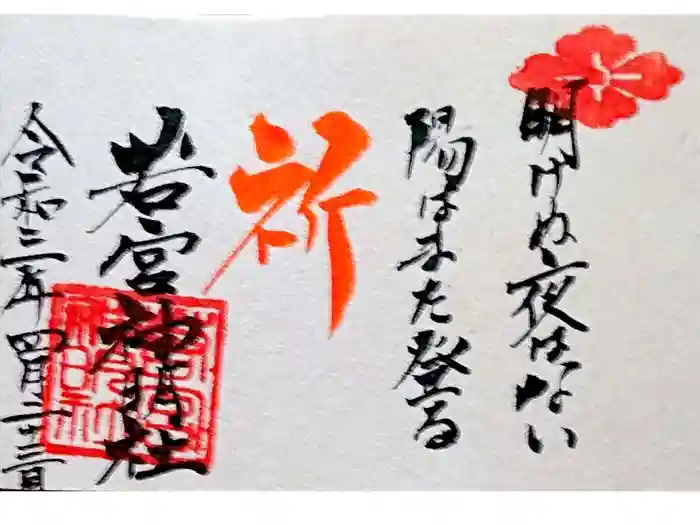 明けぬ夜はない
陽はまた登る
祈
若宮神明社
令和三年四月二十三日